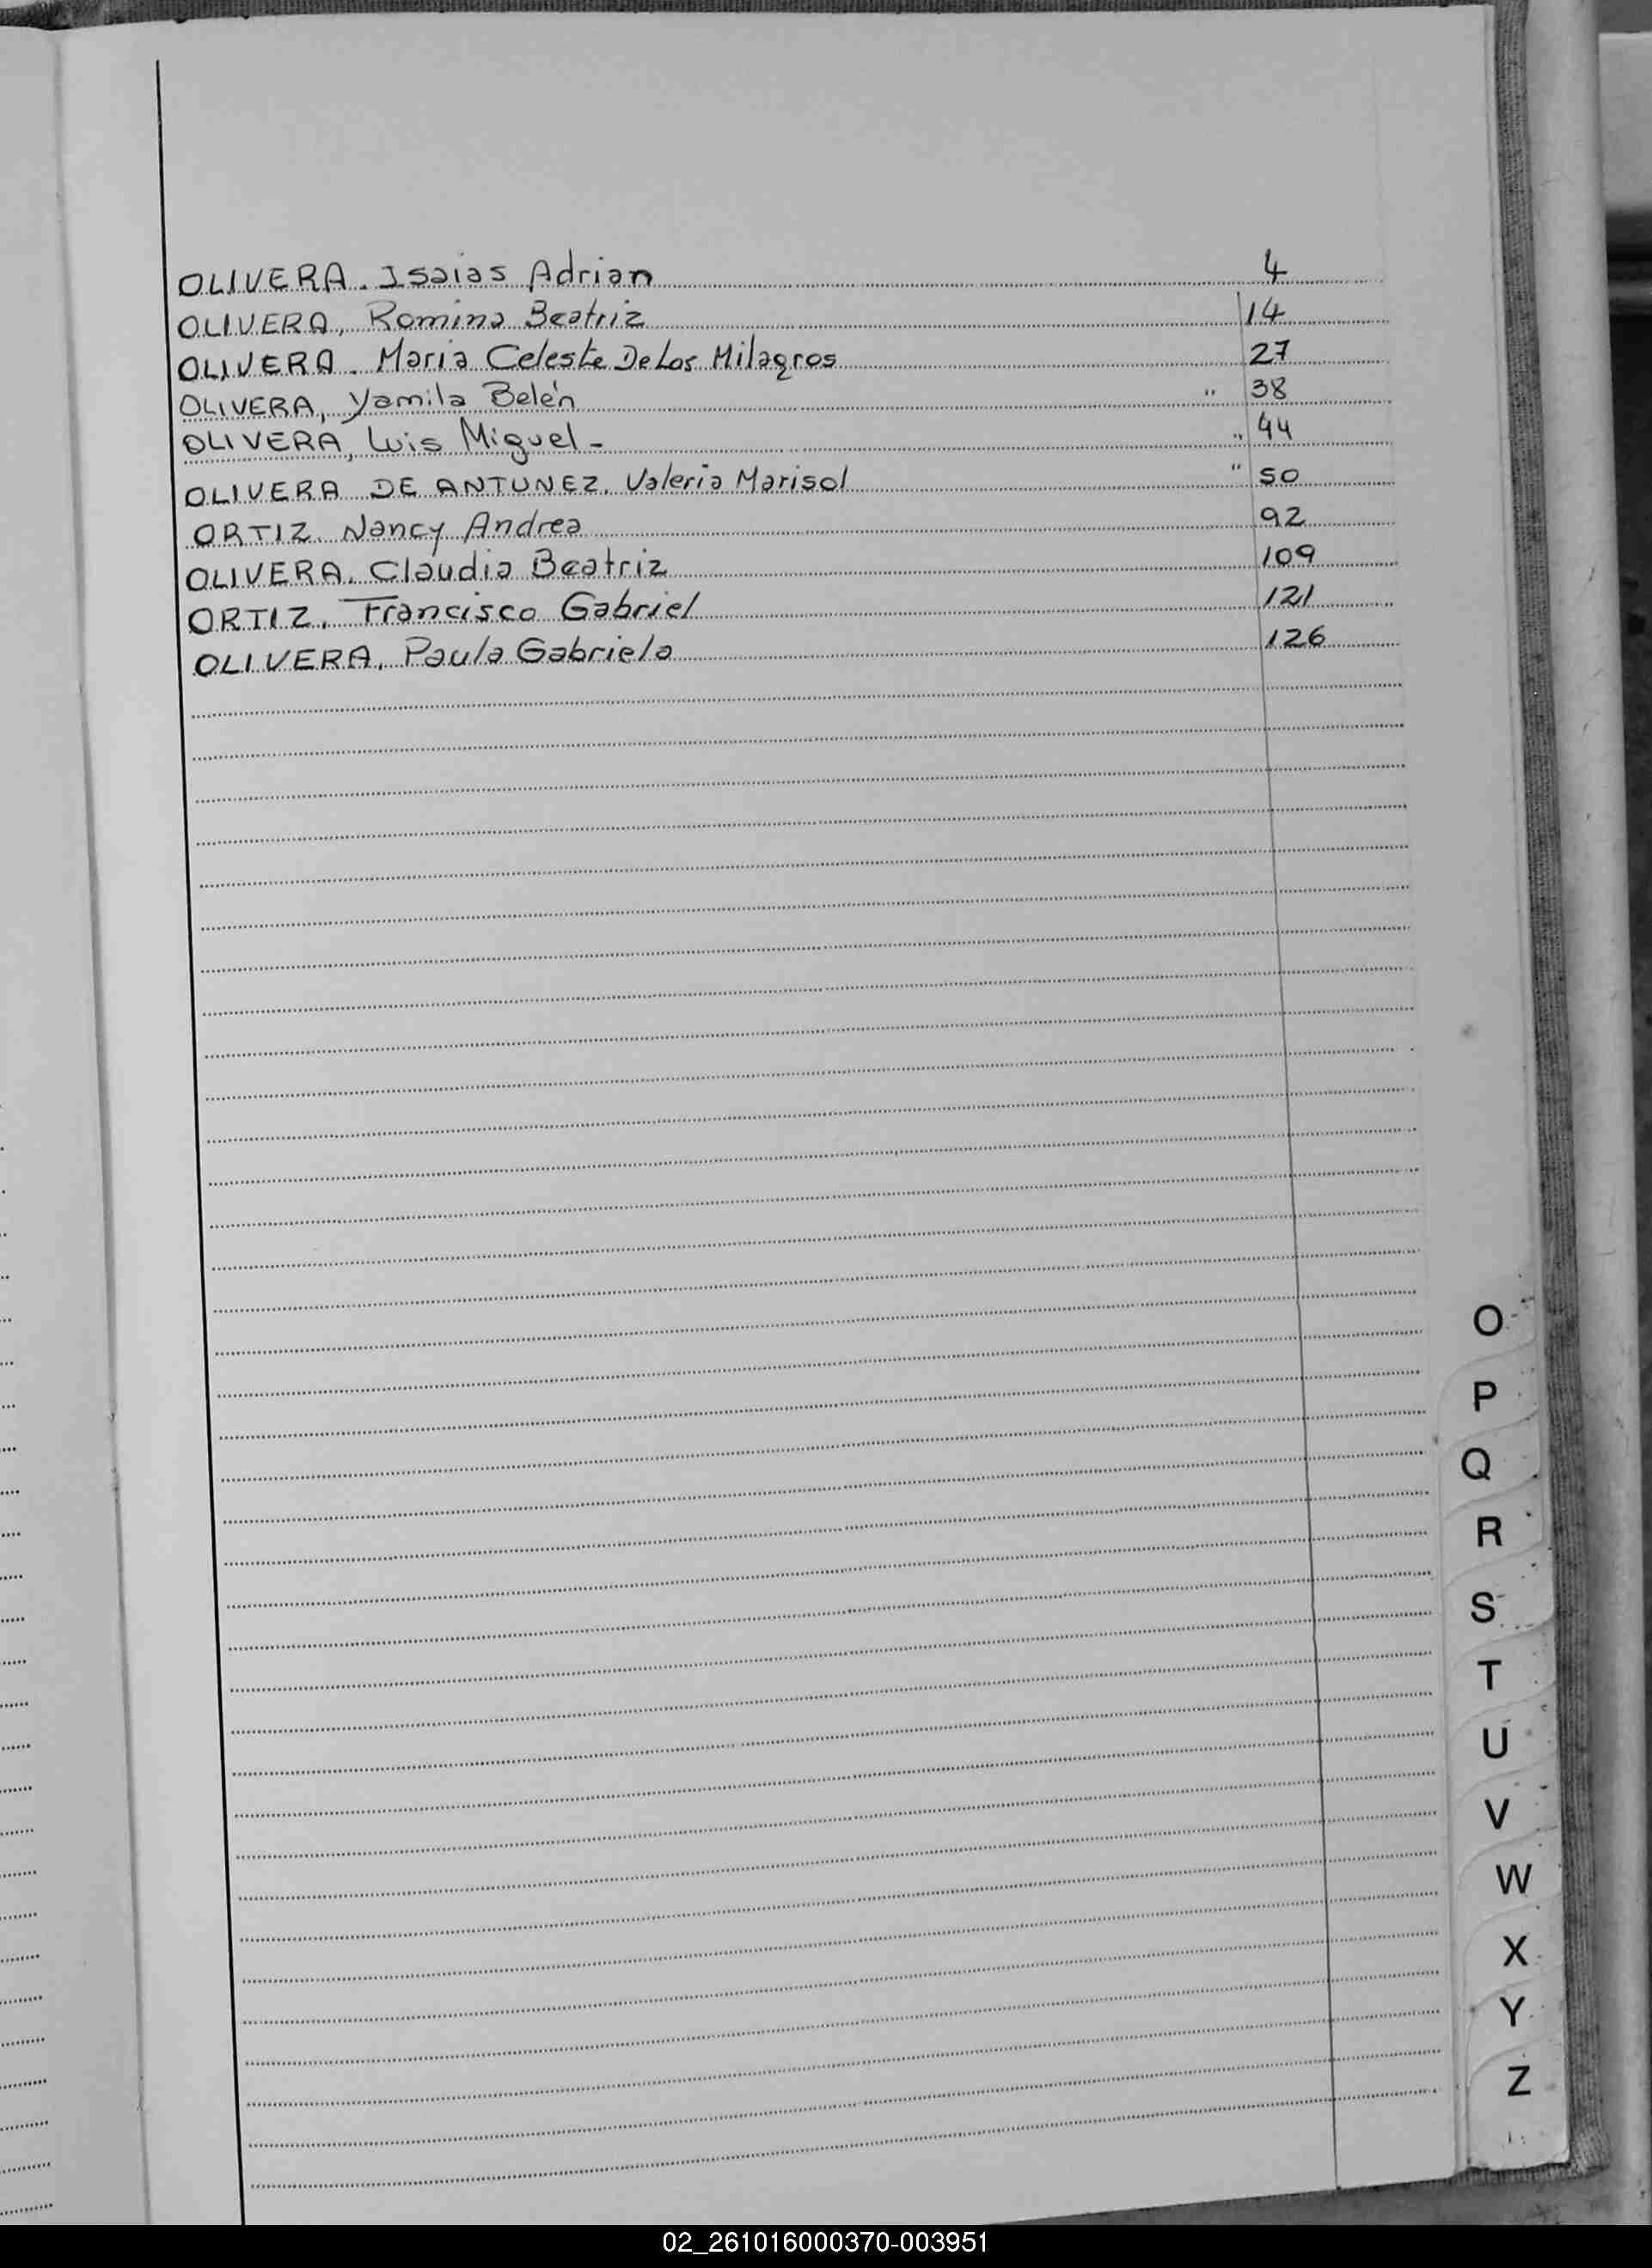 OLIVERA. Isaias Adrian 4
OLIVERA, Romina Beatriz 14
OLIVERA. Maria Celeste De Los Milagros 27
OLIVERA, Yamila Belén " 38
OLIVERA, Luis Miguel - " 44
OLIVERA DE ANTUNEZ. Valeria Marisol " 50
ORTIZ. Nancy Andrea 92
OLIVERA. Claudia Beatriz 109
ORTIZ, Francisco Gabriel 121
OLIVERA, Paula Gabriela 126
O
P
Q
R
S
T
U
V
W
X
Y
Z
02_261016000370-003951